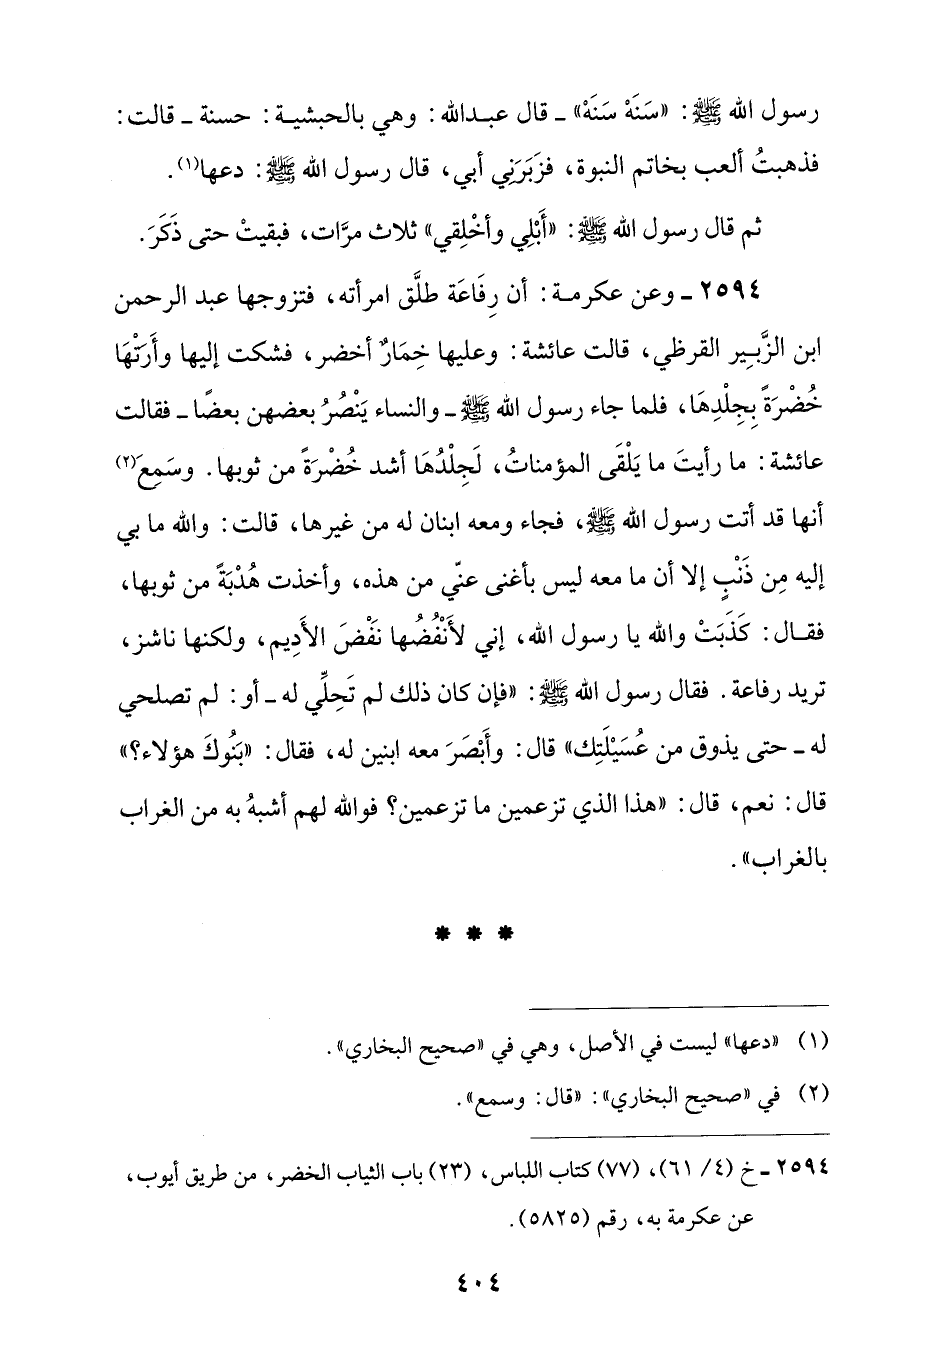 رسول الله ﷺ: «سَنَهْ سَنَهْ» ـ قال عبدالله: وهي بالحبشية: حسنة ـ قالت:
فذهبتُ ألعب بخاتم النبوة، فزَبَرَنِي أبي، قال رسول الله ﷺ: دعها(١).
ثم قال رسول الله ﷺ: «أَبْلِي وأخْلِقي» ثلاث مرَّات، فبقيتْ حتى ذَكَرَ.
٢٥٩٤ ـ وعن عكرمة: أن رِفَاعَة طلَّق امرأته، فتزوجها عبد الرحمن
ابن الزَّبِير القرظي، قالت عائشة: وعليها خِمَارٌ أخضر، فشكت إليها وأَرَتْهَا
خُضْرَةً بِجِلْدِهَا، فلما جاء رسول الله ﷺ ـ والنساء يَنْصُرُ بعضهن بعضًا ـ فقالت
عائشة: ما رأيتَ ما يَلْقَى المؤمناتُ، لَجِلْدُهَا أشد خُضْرَةً من ثوبها. وسَمِعَ(٢)
أنها قد أتت رسول الله ﷺ، فجاء ومعه ابنان له من غيرها، قالت: والله ما بي
إليه مِن ذَنْبٍ إلا أن ما معه ليس بأغنى عنّي من هذه، وأخذت هُدْبَةً من ثوبها،
فقال: كَذَبَتْ والله يا رسول الله، إني لأَنْفُضُها نَفْضَ الأَدِيم، ولكنها ناشز،
تريد رفاعة. فقال رسول الله ﷺ: «فإن كان ذلك لم تَحِلِّي له ـ أو: لم تصلحي
له ـ حتى يذوق من عُسَيْلَتِك» قال: وأَبْصَرَ معه ابنين له، فقال: «بَنُوكَ هؤلاء؟»
قال: نعم، قال: «هذا الذي تزعمين ما تزعمين؟ فوالله لهم أشبهُ به من الغراب
بالغراب».
* * *
(١) «دعها» ليست في الأصل، وهي في «صحيح البخاري».
(٢) في «صحيح البخاري»: «قال: وسمع».
٢٥٩٤ ـ خ (٤/ ٦١)، (٧٧) كتاب اللباس، (٢٣) باب الثياب الخضر، من طريق أيوب،
عن عكرمة به، رقم (٥٨٢٥).
٤٠٤